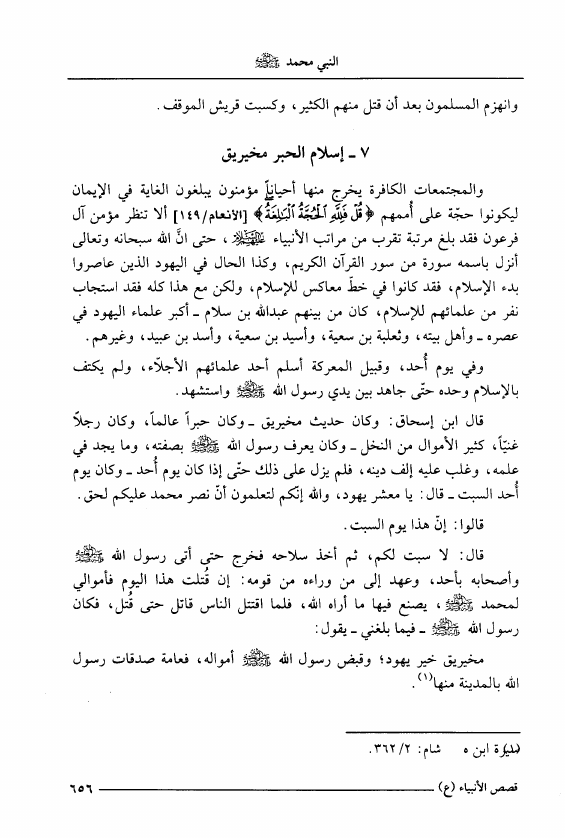 النبي محمد ﷺ
وانهزم المسلمون بعد أن قتل منهم الكثير، وكسبت قريش الموقف.
٧ ـ إسلام الحبر مخيريق
والمجتمعات الكافرة يخرج منها أحياناً مؤمنون يبلغون الغاية في الإيمان
ليكونوا حجّة على أُممهم ﴿قُلْ فَلِلَّهِ الْحُجَّةُ الْبَالِغَةُ﴾ [الأنعام/١٤٩] ألا تنظر مؤمن آل
فرعون فقد بلغ مرتبة تقرب من مراتب الأنبياء ، حتى انَّ الله سبحانه وتعالى
أنزل باسمه سورة من سور القرآن الكريم، وكذا الحال في اليهود الذين عاصروا
بدء الإسلام، فقد كانوا في خطّ معاكس للإسلام، ولكن مع هذا كله فقد استجاب
نفر من علمائهم للإسلام، كان من بينهم عبدالله بن سلام ـ أكبر علماء اليهود في
عصره ـ وأهل بيته، وثعلبة بن سعية، وأسيد بن سعية، وأسد بن عبيد، وغيرهم.
وفي يوم أُحد، وقبيل المعركة أسلم أحد علمائهم الأجلّاء، ولم يكتف
بالإسلام وحده حتّى جاهد بين يدي رسول الله ﷺ واستشهد.
قال ابن إسحاق: وكان حديث مخيريق ـ وكان حبراً عالماً، وكان رجلاً
غنيّاً، كثير الأموال من النخل ـ وكان يعرف رسول الله ﷺ بصفته، وما يجد في
علمه، وغلب عليه إلف دينه، فلم يزل على ذلك حتّى إذا كان يوم أُحد ـ وكان يوم
أُحد السبت ـ قال: يا معشر يهود، والله إنّكم لتعلمون أنّ نصر محمد عليكم لحق.
قالوا: إنّ هذا يوم السبت.
قال: لا سبت لكم، ثم أخذ سلاحه فخرج حتى أتى رسول الله ﷺ
وأصحابه بأحد، وعهد إلى من وراءه من قومه: إن قُتلت هذا اليوم فأموالي
لمحمد ﷺ، يصنع فيها ما أراه الله، فلما اقتتل الناس قاتل حتى قُتل، فكان
رسول الله ﷺ ـ فيما بلغني ـ يقول:
مخيريق خير يهود؛ وقبض رسول الله ﷺ أمواله، فعامة صدقات رسول
الله بالمدينة منها(١).
ابن ه شام: ٣٦٢/٢.
قصص الأنبياء (ع) ٦٥٦